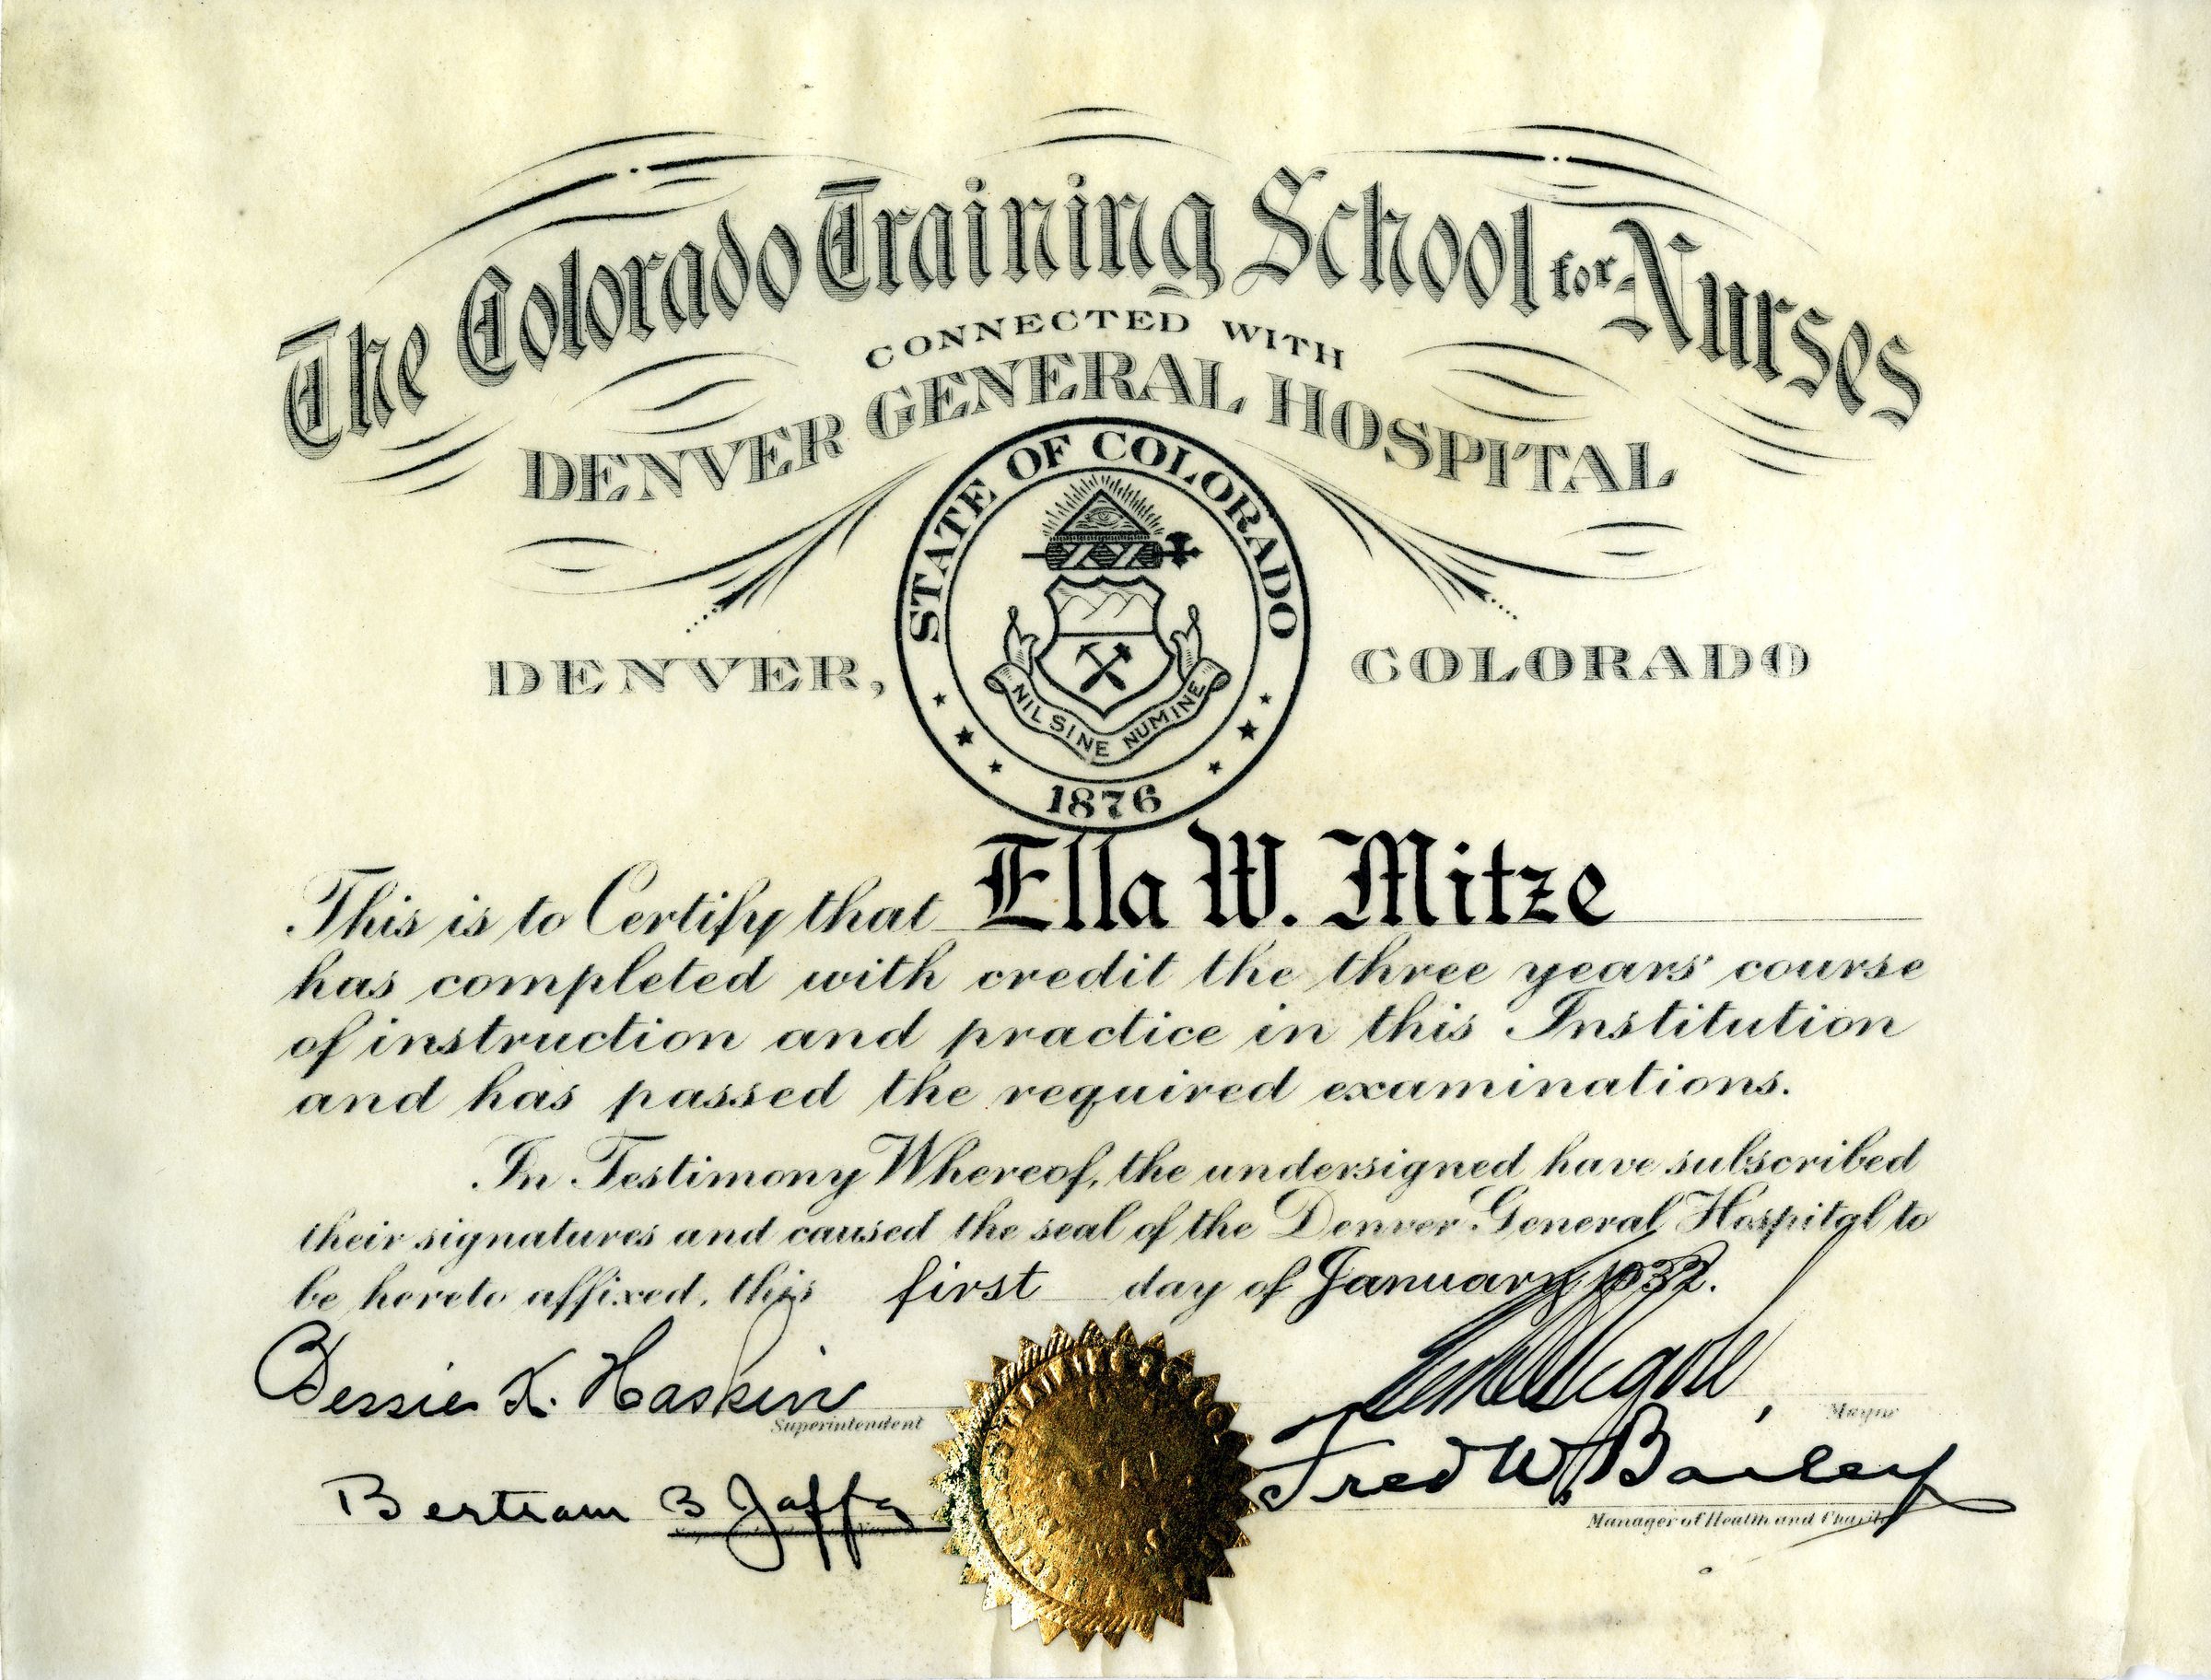 The Colorado Training School for Nurses
CONNECTED WITH
DENVER GENERAL HOSPITAL
STATE OF COLORADO
NIL SINE NUMINE
1876
DENVER, COLORADO
This is to Certify that Ella W. Mitze
has completed with credit the three years' course
of instruction and practice in this Institution
and has passed the required examinations.
In Testimony Whereof, the undersigned have subscribed
their signatures and caused the seal of the Denver General Hospital to
be hereto affixed, this first day of January 1932.
Bessie K. Haskin
Superintendent
Mayor
Bertram B Jaffa
Fred W. Bailey
Manager of Health and Charity